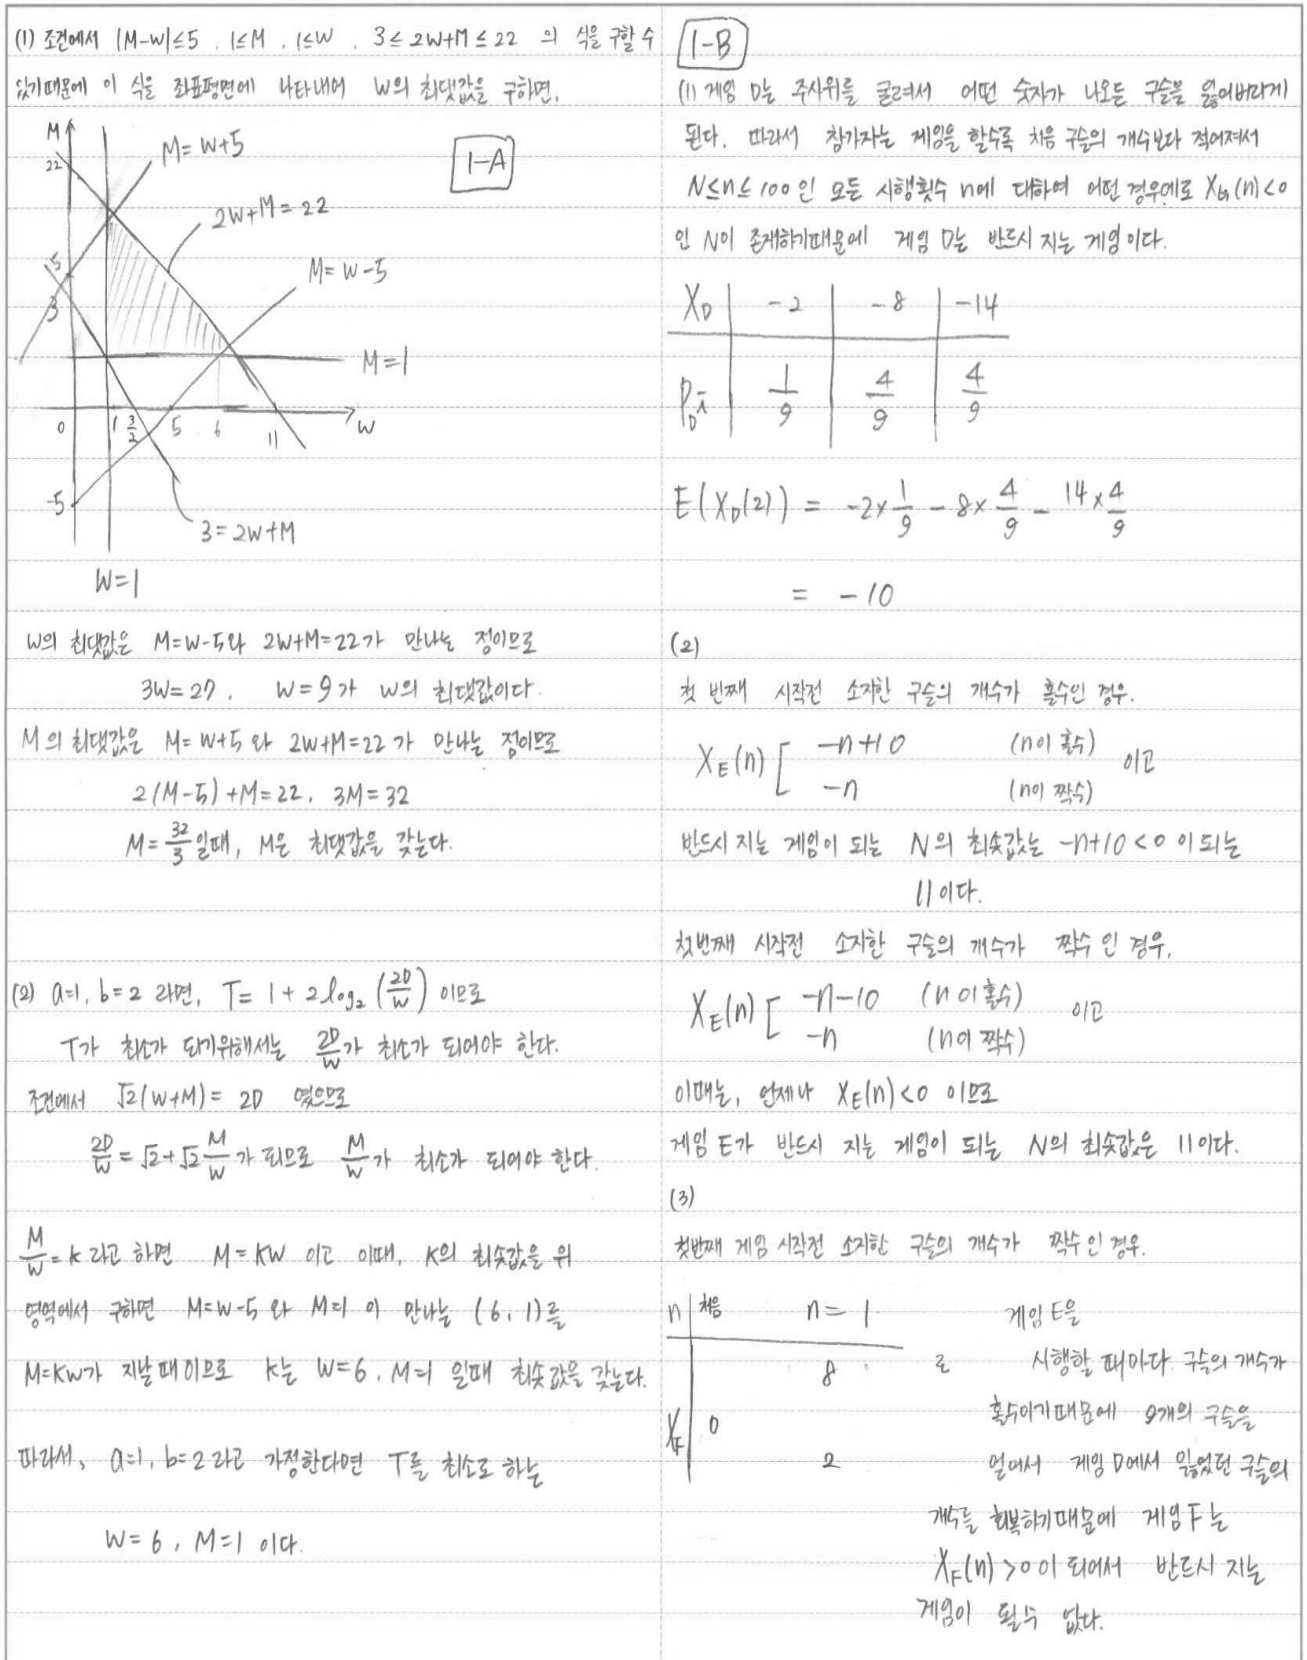 (1) 조건에서 |M-W|≤5, 1≤M, 1≤W, 3≤2W+M≤22 의 식을 구할 수
있기때문에 이 식을 좌표평면에 나타내어 W의 최댓값을 구하면,
1-A
M
22
M=W+5
2W+M=22
M=W-5
5
3
M=1
0 1 3/2 5 6 11 W
-5
3=2W+M
W=1
W의 최댓값은 M=W-5와 2W+M=22가 만나는 점이므로
3W=27, W=9가 W의 최댓값이다.
M의 최댓값은 M=W+5와 2W+M=22가 만나는 점이므로
2(M-5)+M=22, 3M=32
M=32/3일때, M은 최댓값을 갖는다.
(2) a=1, b=2 라면, T=1+2log₂(2D/W) 이므로
T가 최소가 되기위해서는 2D/W가 최소가 되어야 한다.
조건에서 √2(W+M)=2D 였으므로
2D/W=√2+√2 M/W가 되므로 M/W가 최소가 되어야 한다.
M/W=k라고 하면 M=kW 이고 이때, k의 최솟값을 위
영역에서 구하면 M=W-5 와 M=1이 만나는 (6, 1)을
M=kW가 지날때이므로 k는 W=6, M=1 일때 최솟값을 갖는다.
따라서, a=1, b=2라고 가정한다면 T를 최소로 하는
W=6, M=1 이다.
1-B
(1) 게임 D는 주사위를 굴려서 어떤 숫자가 나오든 구슬을 잃어버리게
된다. 따라서 참가자는 게임을 할수록 처음 구슬의 개수보다 적어져서
N≤n≤100인 모든 시행횟수 n에 대하여 어떤 경우에도 (n)<0
인 N이 존재하기때문에 게임 D는 반드시 지는 게임이다.
X_D -2 -8 -14
1/9 4/9 4/9
E(X_D(2)) = -2×1/9 - 8×4/9 - 14×4/9
= -10
(2)
첫 번째 시작전 소지한 구슬의 개수가 홀수인 경우.
X_E(n) [ -n+10 (n이 홀수) 이고
-n (n이 짝수)
반드시 지는 게임이 되는 N의 최솟값는 -n+10<0 이 되는
11이다.
첫번째 시작전 소지한 구슬의 개수가 짝수 인 경우,
X_E(n) [ -n-10 (n이 홀수) 이고
-n (n이 짝수)
이때는, 언제나 X_E(n)<0 이므로
게임 E가 반드시 지는 게임이 되는 N의 최솟값은 11이다.
(3)
첫번째 게임 시작전 소지한 구슬의 개수가 짝수인 경우.
n 처음 n=1
X_F 0 8
2
로 게임 E을
시행할 때마다 구슬의 개수가
홀수이기때문에 9개의 구슬을
얻어서 게임 D에서 잃었던 구슬의
개수를 회복하기때문에 게임 F는
X_F(n)>0이 되어서 반드시 지는
게임이 될수 없다.